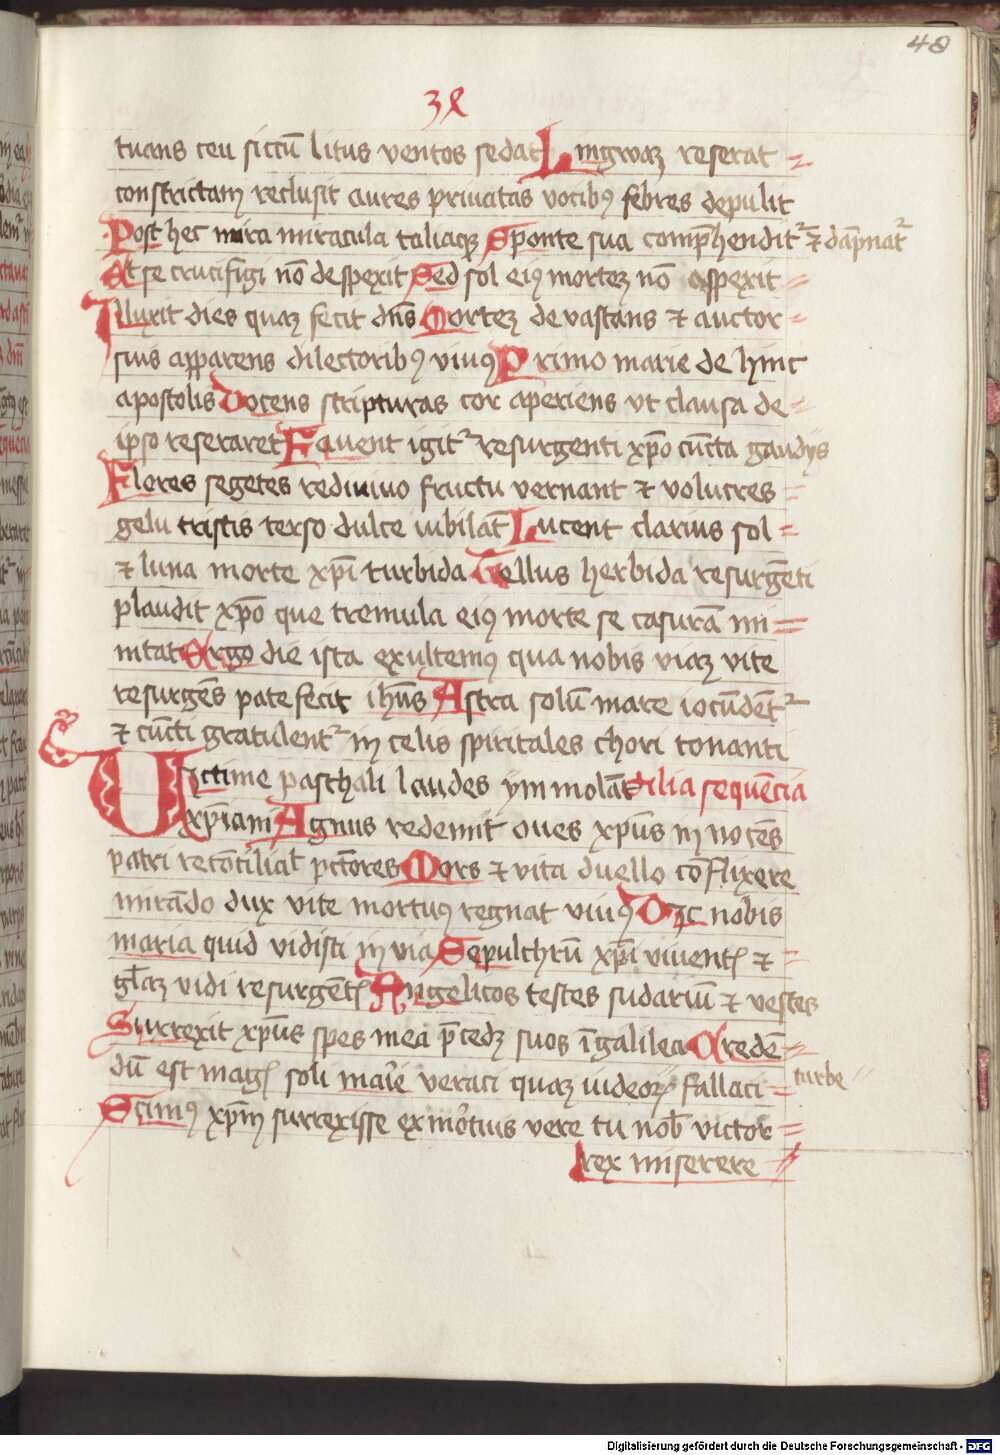 48
38
tuans ceu siccū litus ventos sedat Lingwaꝫ reserat
constrictam reclusit aures priuatas vocibꝰ febres depulit
Post hec mira miracula taliaqꝫ Sponte sua comp̄henditᷣ ⁊ dāpnatᷣ
At se crucifigi nō despexit Sed sol eiꝰ morteꝫ nō aspexit
Illuxit dies quaꝫ fecit dn̄s Morteꝫ devastans ⁊ auctor
suis apparens dilectoribꝰ viuꝰ Primo marie dehinc
apostolis Docens scripturas cor aperiens vt clausa de
ipso reseraret Fauent igitᷣ resurgenti xp̄o cūcta gaudys
Flores segetes rediuiuo fructu vernant ⁊ volucres
gelu tristis terso dulce iubilāt Lucent clarius sol
⁊ luna morte xp̄i turbida Tellus herbida resurgēti
plaudit xp̄o que tremula eiꝰ morte se casurā mi
nitat Ergo die ista exultemꝰ qua nobis viaꝫ vite
resurgēs patefecit ihūs Astra solū mare iocūdētᷣ
⁊ cūcti gratulentᷣ in celis spiritales chori tonanti
Uictime paschali laudes ymmolāt Alia sequēcia
xp̄iani Agnus redemit oues xp̄us innocēs
patri recōciliat pctōres Mors ⁊ vita duello cōflixere
mirādo dux vite mortuꝰ regnat viuꝰ Dic nobis
maria quid vidisti in via Sepulchrū xp̄i viventꝭ ⁊
gl̄aꝫ vidi resurgētꝭ Angelicos testes sudariū ⁊ vestes
Surrexit xp̄us spes mea p̄cedꝫ suos ī galilea Credē
dū est magꝭ soli marie veraci quaꝫ iudeoꝝ fallaci
turbe
Scimꝰ xp̄m surrexisse ex mortuis vere tu nob̄ victor
rex miserere
Digitalisierung gefördert durch die Deutsche Forschungsgemeinschaft - DFG